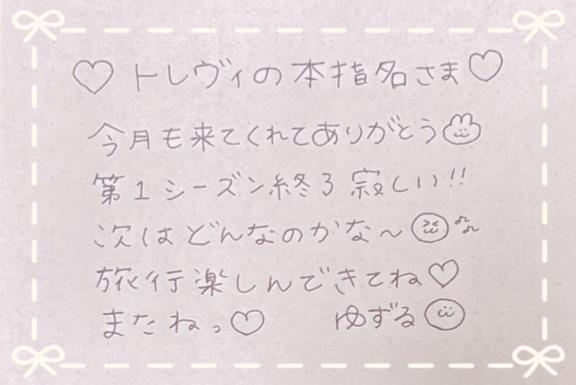 ♡トレヴィの本指名さま♡
今月も来てくれてありがとう
第1シーズン終了寂しい!!
次はどんなのかな〜
旅行楽しんできてね♡
またねっ♡ ゆずる